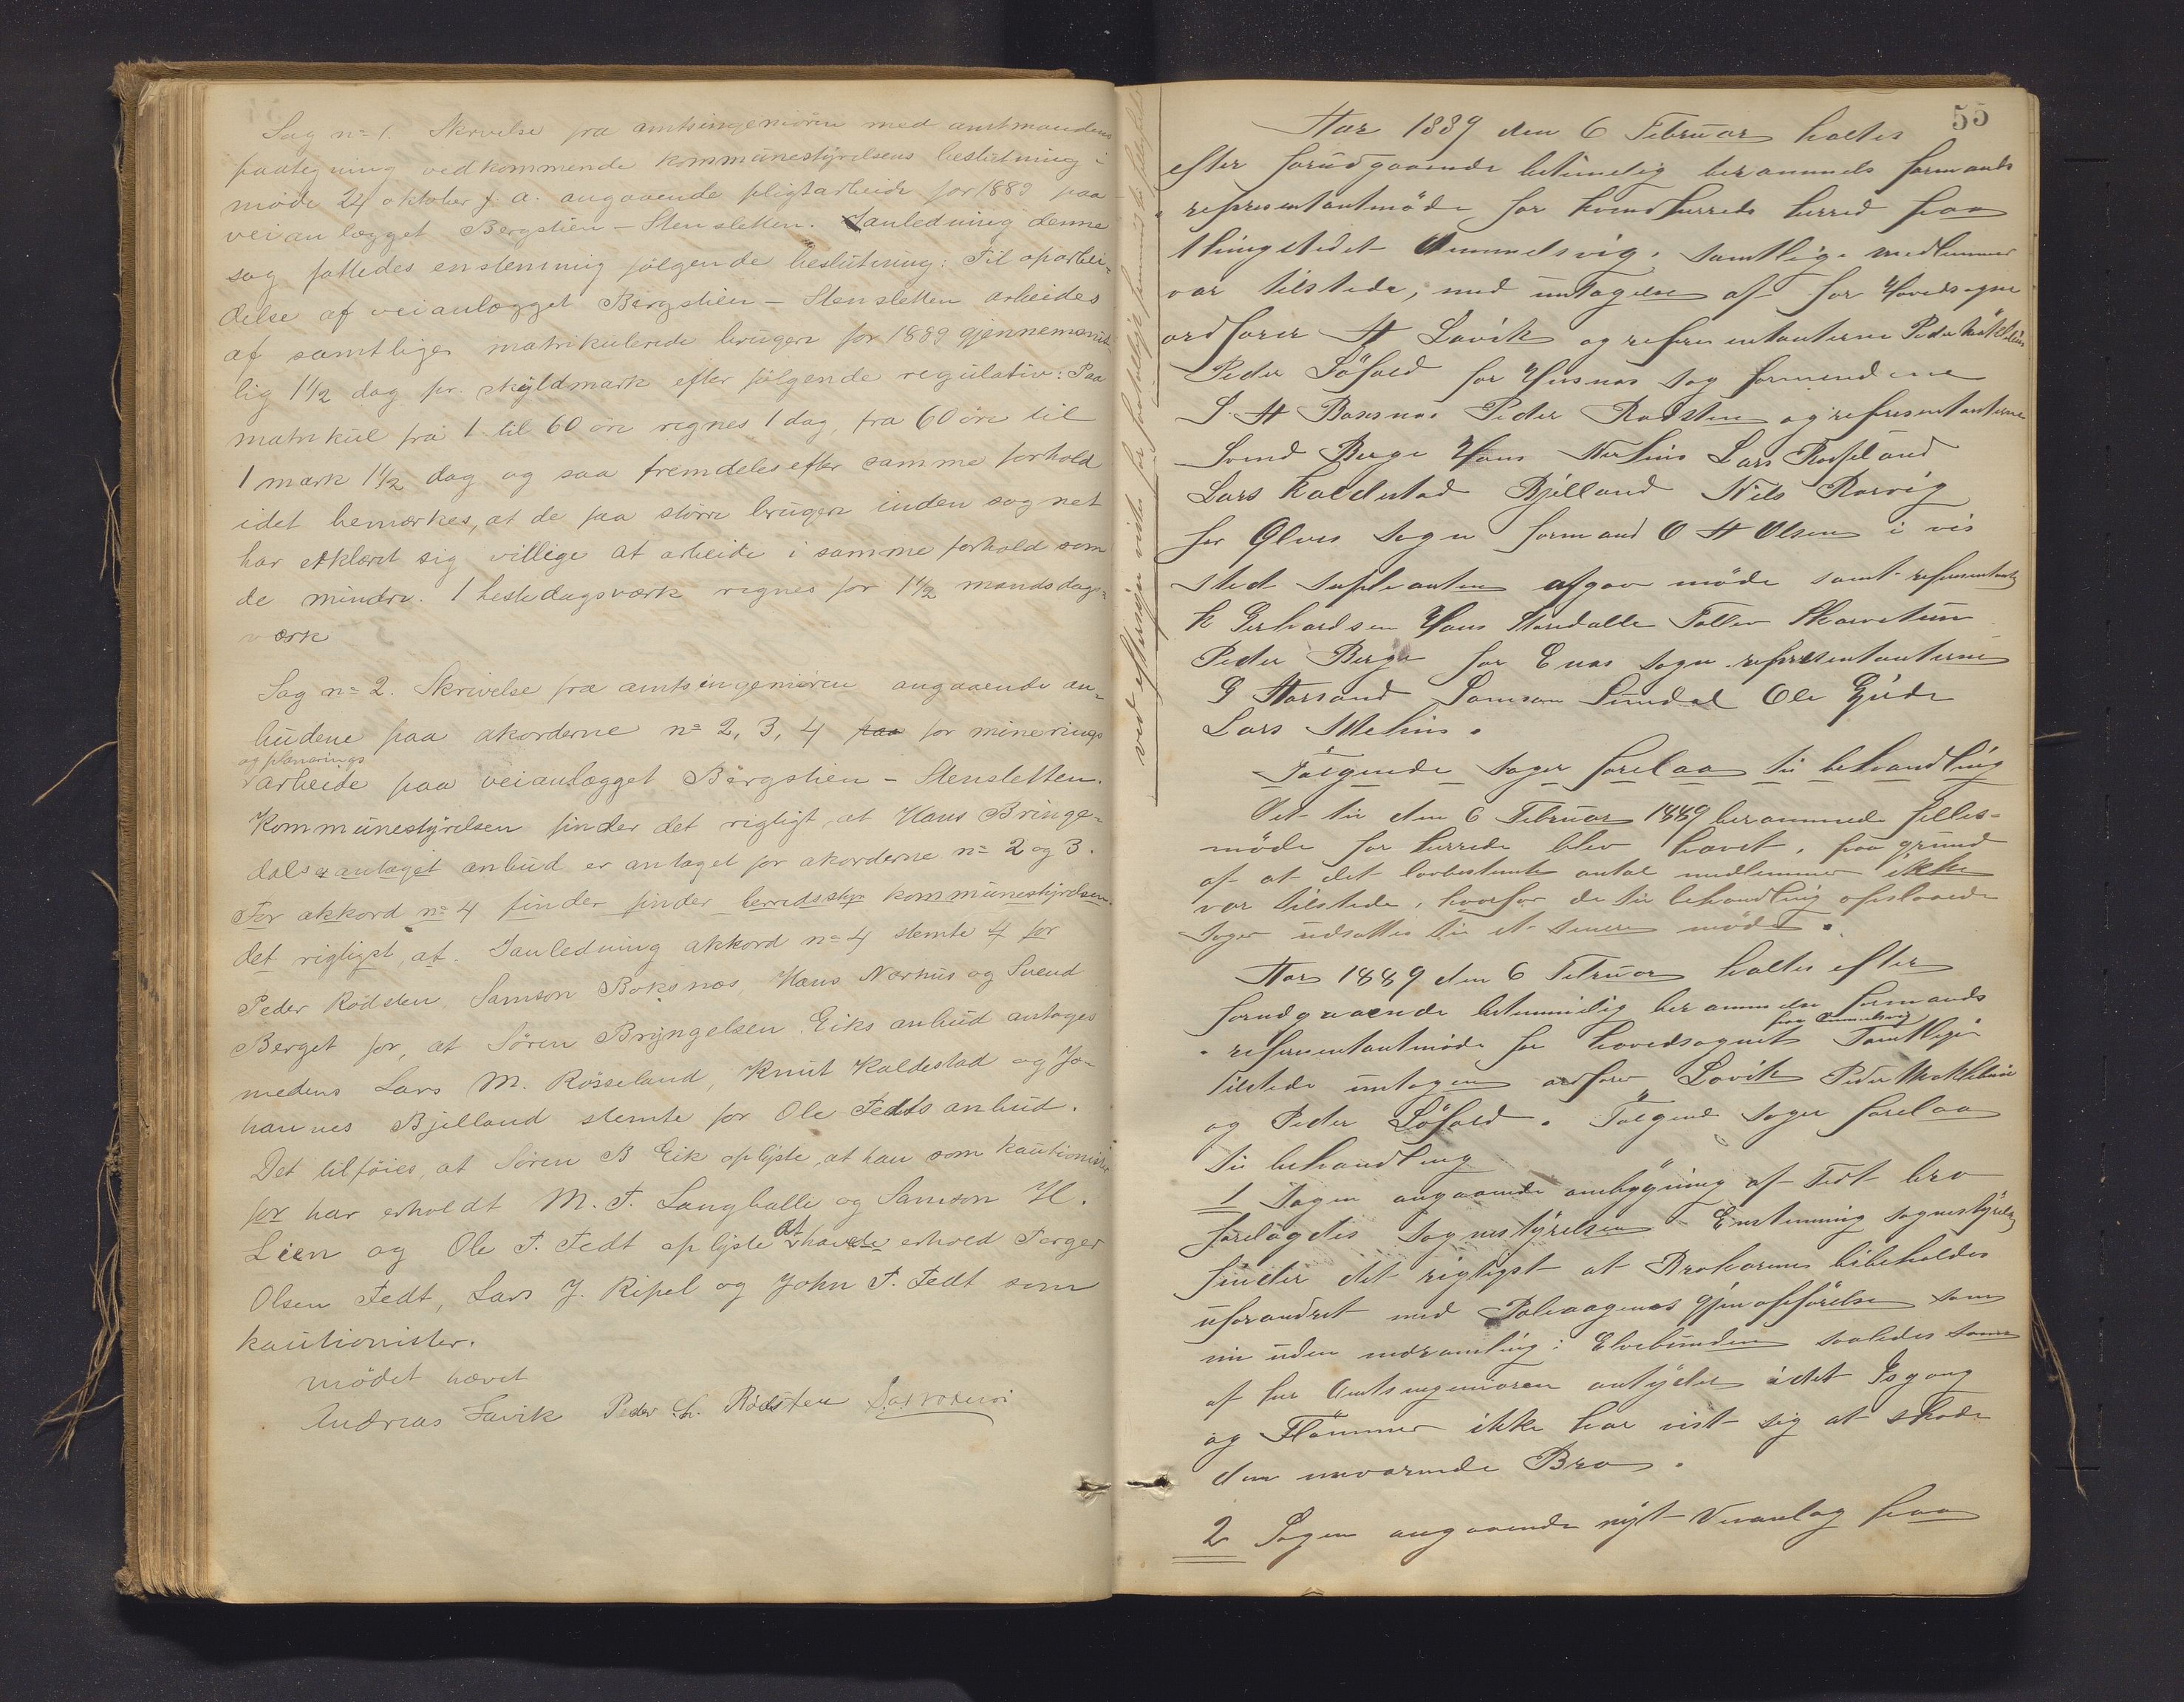 Sag no 1. Skrivelse fra amtsingeniören med amtmandens
paategning vedkommende kommunestyrelsens beslutning i
möde 24 oktober f. a. angaaende pligtarbeide for 1889 paa
veianlægget Bergstien - Stensletten. I anledning denne
sag fattedes enstemmig følgende beslutning: Til oparbei-
delse af veianlægget Bergstien - Stensletten arbeides
af samtlige matrikulerede brugere for 1889 gjennemsnit-
lig 1 1/2 dag pr. skyldmark efter følgende regulativ: Paa
matrikul fra 1 til 60 öre regnes 1 dag, fra 60 öre til
1 mark 1 1/2 dag og saa fremdeles efter samme forhold
idet bemærkes, at de paa större brugere inden sognet
har erklæret sig villige at arbeide i samme forhold som
de mindre. 1 hestedagsværk regnes for 1 1/2 mandsdags-
værk
Sag no 2. Skrivelse fra amtsingeniören angaaende an-
budene paa akorderne no 2, 3, 4 paa for minerings
og planerings
arbeide paa veianlægget Bergstien - Stensletten.
Kommunestyrelsen finder det rigtigt, at Hans Bringe-
dals er antaget anbud er antaget for akorderne no 2 og 3.
For akkord no 4 finder finder herredsstyr kommunestyrelsen
det rigtigst, at. I anledning akkord no 4 stemte 4 for
Peder Rödsten, Samson Boksnæs, Hans Nærhus og Svend
Berget for, at Sören Bryngelsen Eiks anbud antages
medens Lars M. Rösseland, Knut Kaldestad og Jo-
hannes Bjelland stemte for Ole Fedts anbud.
Det tilföies, at Sören B Eik oplyste, at han som kautionister
for har erholdt M. T. Langballe og Samson H.
Lien og Ole T. Fedt oplyste at havde erhold Torger
Olsen Fedt, Lars J. Ripel og John T. Fedt som
kautionister.
mödet hævet
Andreas Lavik Peder L. Rödsten
55
Aar 1889 den 6 Februar holtes
efter forudgaaende betimelig berammels formands
repræsentantmöde for kvindherreds herred paa
thingstedet Ommelsvig. Samtlige medlemmer
var tilstede, med untagelse af for Hovedsogne
ordförer A Lavik og representanterne Peder
Peder Löfald for Husnæs sog formendene
S A Boxsnæs Peder Rødsten og representanterne
Svend Berge Hans Nerhus Lars Røsseland
Lars Kaldestad Bjelland Nils Rørvig
for Ølves Sogn formand O A Olsen i vis
sted supleanten afgav möde samt representant
K Gerhardsen Hans Tollev
Peder Berge for Enæs Sogn representanterne
G Samson Sundal Ole Gjude
Lars Mehus.
Følgende Sager forelaa til behandling
Det til den 6 Februar 1889 berammede felles-
möde for herrede blev hævet, paa grund
af at det lovbestemte antal medlemmer ikke
var tilstede, hvorfor de til behandling opslaaede
Sager udsattes til et senere möde.
Aar 1889 den 6 Februar holtes efter
forudgaaende betimmelig berammelse formands
paa Ommelsvig
representantmöde for hovedsognet Samtlige
tilstede untagen ordfører Lavik Peder
og Peder Löfald. Følgend Sager forelaa
til behandling
1 Sagen angaaende ombygning af Fedt bro
forelagdes Sognestyrelsen - Enstemmig sognestyrelse
finder det rigtigst at Brokarene bibeholdes
uforandret med Gjenopförelse som
nu uden nedramling i Elvebunden saaledes som
af hr Amtsingeniøren antydet idet Isgang
og Flommer ikke har vist sig at skade
den nuværende Bro.
2 Sagen angaaende nyt Veianlæg paa